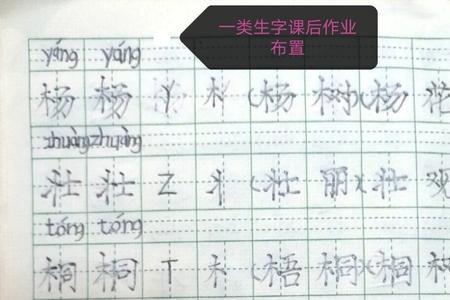 一类生字课后作业
布置
yáng yáng
杨 杨 丫 木 (杨 树)(杨 花
zhuàng zhuàng
壮 壮 Z 丬 (壮 丽)(壮 观
tóng tóng
桐 桐 丅 木 (梧 桐)(桐